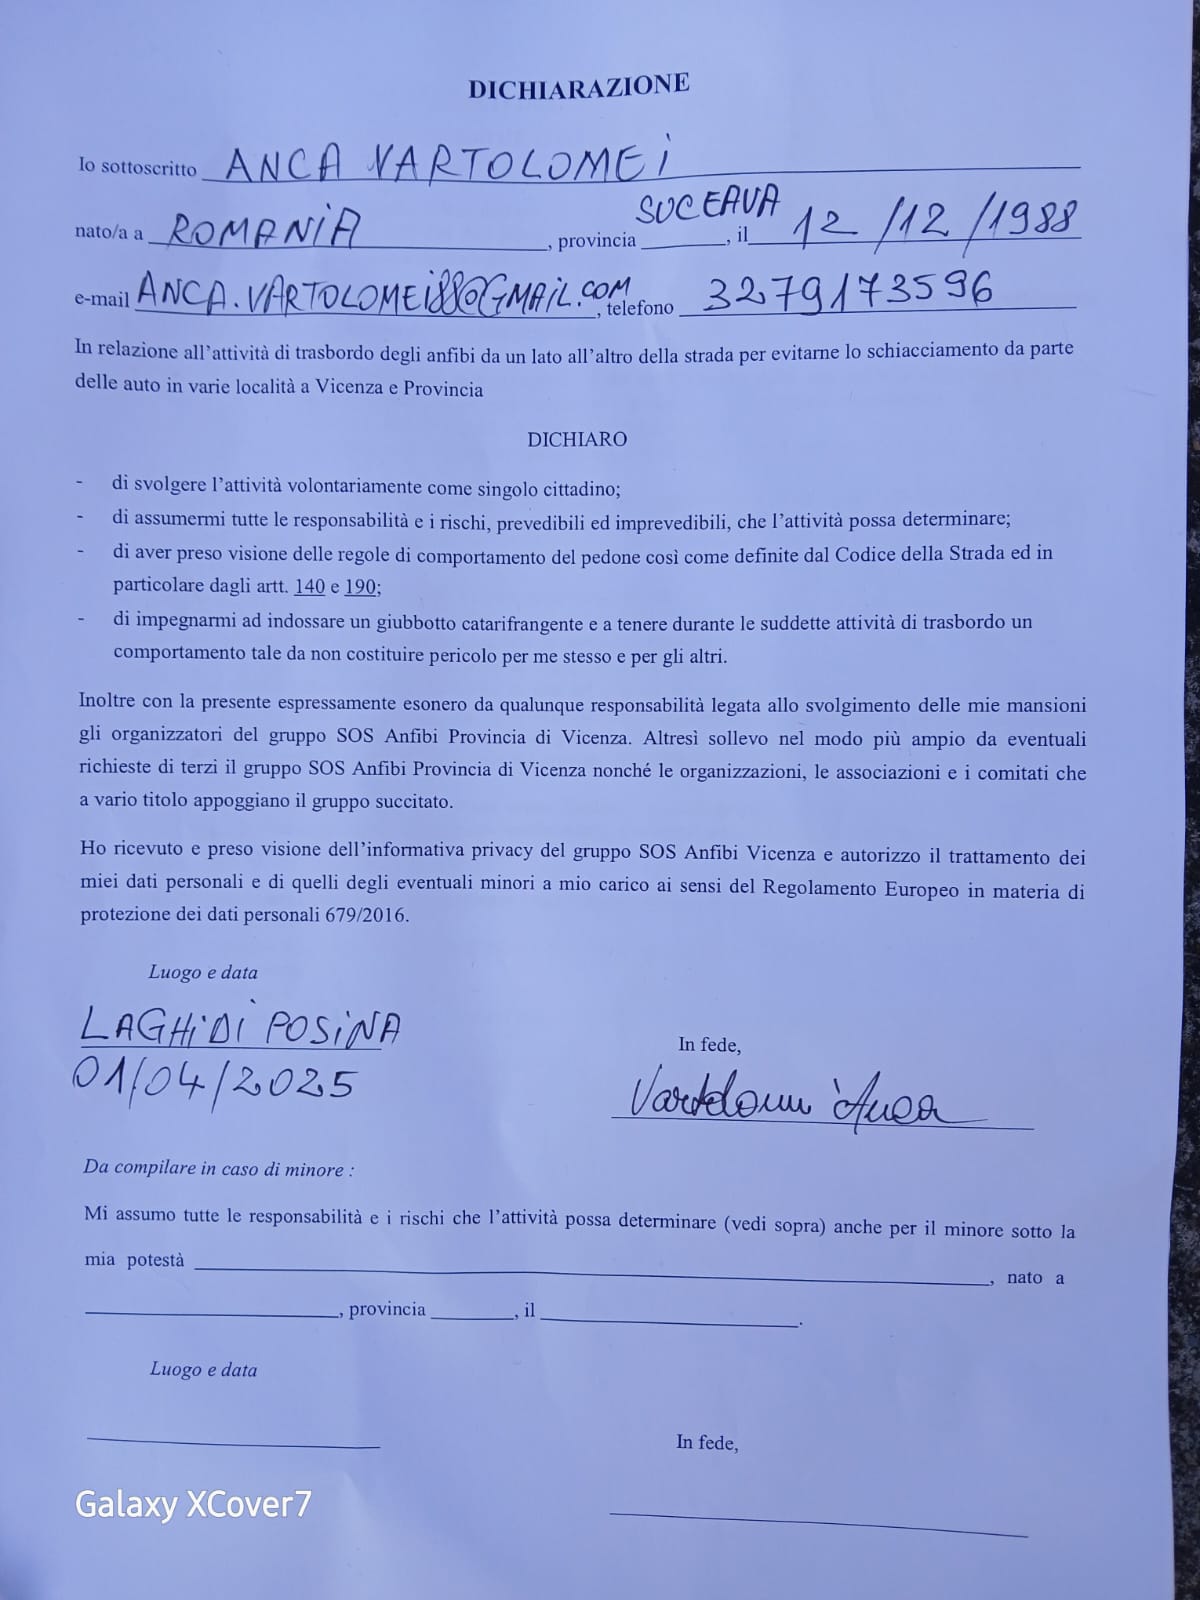 DICHIARAZIONE
Io sottoscritto ANCA VARTOLOMEI
nato/a a ROMANIA, provincia SUCEAVA, il 12/12/1988
e-mail ANCA.VARTOLOMEI88@GMAIL.COM, telefono 3279173596
In relazione all'attività di trasbordo degli anfibi da un lato all'altro della strada per evitarne lo schiacciamento da parte
delle auto in varie località a Vicenza e Provincia
DICHIARO
- di svolgere l'attività volontariamente come singolo cittadino;
- di assumermi tutte le responsabilità e i rischi, prevedibili ed imprevedibili, che l'attività possa determinare;
- di aver preso visione delle regole di comportamento del pedone così come definite dal Codice della Strada ed in
particolare dagli artt. 140 e 190;
- di impegnarmi ad indossare un giubbotto catarifrangente e a tenere durante le suddette attività di trasbordo un
comportamento tale da non costituire pericolo per me stesso e per gli altri.
Inoltre con la presente espressamente esonero da qualunque responsabilità legata allo svolgimento delle mie mansioni
gli organizzatori del gruppo SOS Anfibi Provincia di Vicenza. Altresì sollevo nel modo più ampio da eventuali
richieste di terzi il gruppo SOS Anfibi Provincia di Vicenza nonché le organizzazioni, le associazioni e i comitati che
a vario titolo appoggiano il gruppo succitato.
Ho ricevuto e preso visione dell'informativa privacy del gruppo SOS Anfibi Vicenza e autorizzo il trattamento dei
miei dati personali e di quelli degli eventuali minori a mio carico ai sensi del Regolamento Europeo in materia di
protezione dei dati personali 679/2016.
Luogo e data
LAGHI DI POSINA
01/04/2025
In fede,
Vartolomei Anca
Da compilare in caso di minore :
Mi assumo tutte le responsabilità e i rischi che l'attività possa determinare (vedi sopra) anche per il minore sotto la
mia potestà , nato a
, provincia , il .
Luogo e data
In fede,
Galaxy XCover7